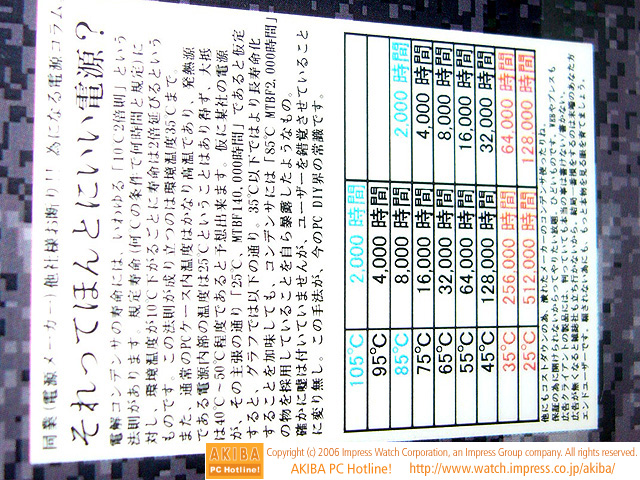 同業(電源メーカー)他社様お断り!! 為になる電源コラム
それってほんとにいい電源?
電解コンデンサの寿命には、いわゆる「10℃2倍則」という
法則があります。規定寿命(何℃の条件で何時間と規定)に
対し、環境温度が10℃下がるごとに寿命は2倍延びるという
ものです。この法則が成り立つのは環境温度35℃まで。
また、通常のPCケース内温度はかなり高温であり、発熱源
である電源内部の温度は25℃ということはあり得ず、大抵
は40℃~50℃程度であると予想出来ます。仮に某社の電源
が、その主張の通り「25℃、MTBF140,000時間」であると仮定
すると、グラフでは以下の通り。35℃以下ではより長寿命化
することを加味しても、コンデンサには「85℃ MTBF2,000時間」
の物を採用していることを自ら暴露したようなもの。
確かに嘘は付いていませんが、ユーザーを錯覚させていること
に変り無し。この手法が、今のPC DIY界の常識です。
105℃ 2,000 時間
95℃ 4,000 時間
85℃ 8,000 時間 2,000 時間
75℃ 16,000 時間 4,000 時間
65℃ 32,000 時間 8,000 時間
55℃ 64,000 時間 16,000 時間
45℃ 128,000 時間 32,000 時間
35℃ 256,000 時間 64,000 時間
25℃ 512,000 時間 128,000 時間
他にもコストダウンの為、潰れたメーカーのコンデンサ使ったりね。
保証の為に開けられないからってやりたい放題。ひどいものです。WEBやプレスも
広告クライアントの製品には、判っていても本当の事は書けない(書かない)。
広告が無くなると雑誌社
エンドユーザーです。騙されない為にも、もっと本物を見る眼を育てましょう。
AKIBA
PC Hotline!
Copyright (c) 2006 Impress Watch Corporation, an Impress Group company. All rights reserved.
AKIBA PC Hotline! http://www.watch.impress.co.jp/akiba/